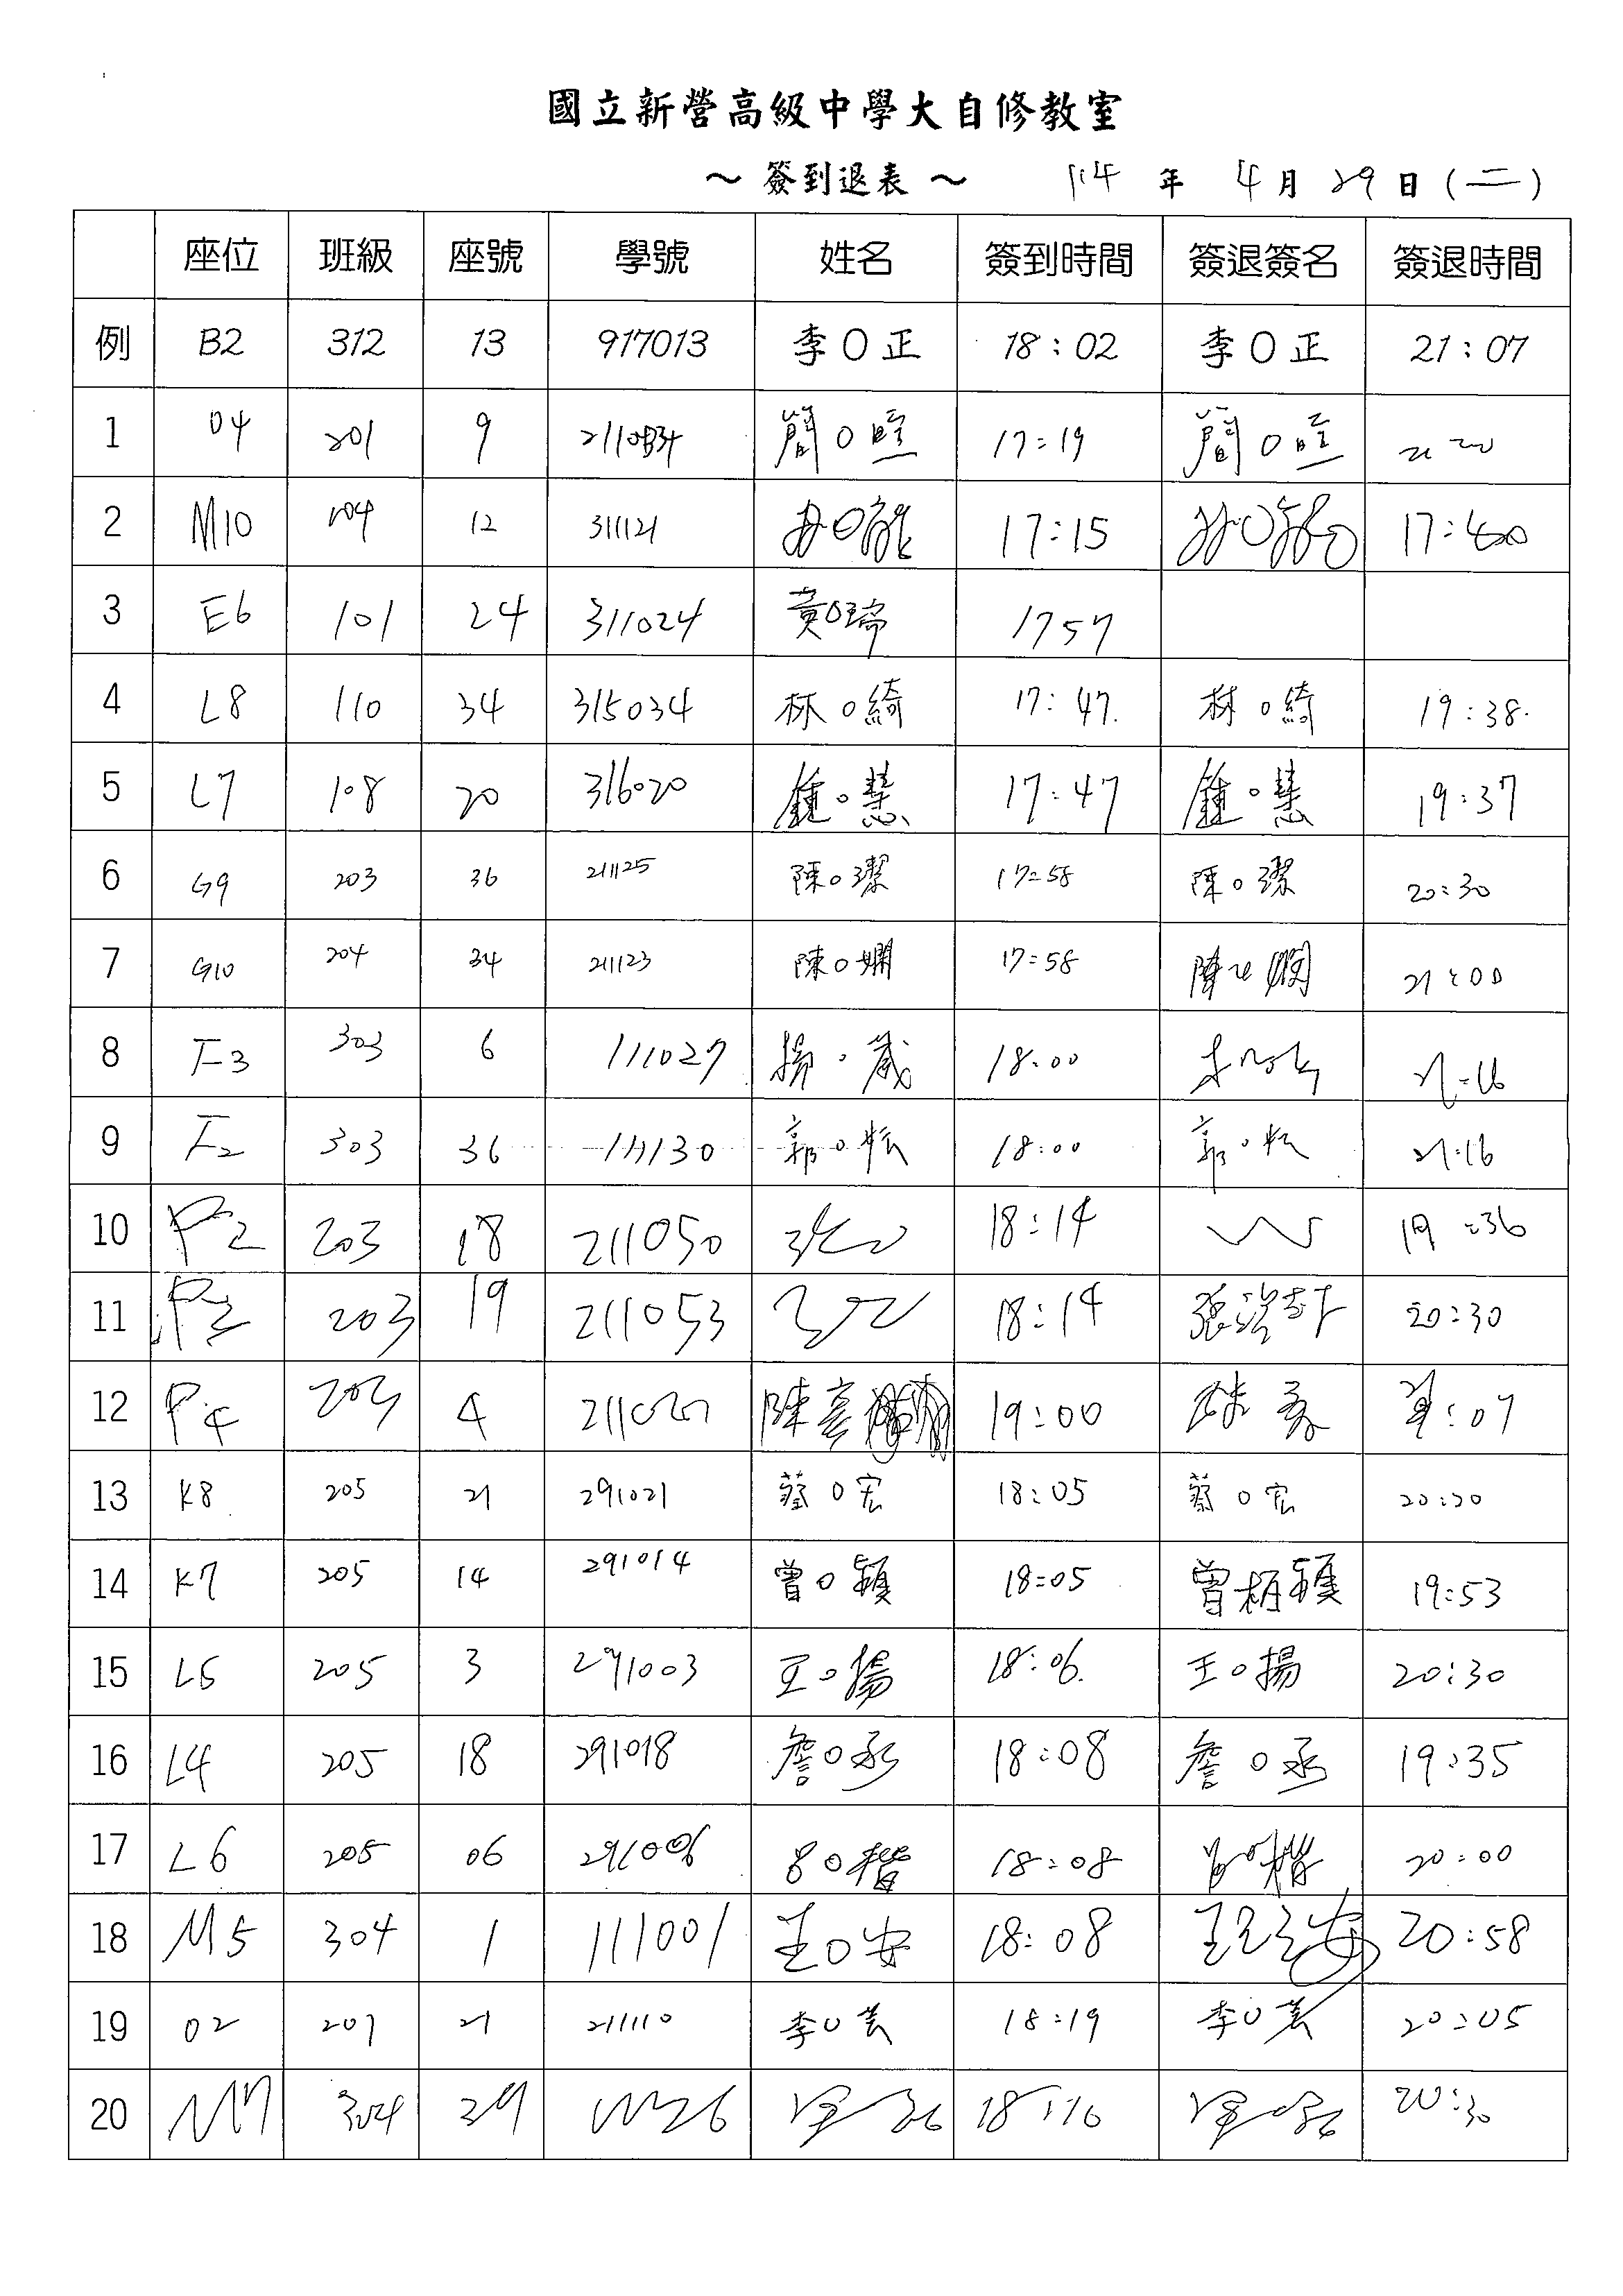 國立新營高級中學大自修教室
～ 簽到退表 ～ 114 年 4 月 29 日 (二)
座位 班級 座號 學號 姓名 簽到時間 簽退簽名 簽退時間
例 B2 312 13 917013 李O正 18:02 李O正 21:07
1 04 201 9 簡O暄 17:19 簡O暄
2 M10 104 12 311121 17:15
3 E6 101 24 311024 黃O瑞 1757
4 L8 110 34 315034 林O綺 17:47. 林O綺 19:38.
5 L7 108 20 316020 鍾O慧 17:47 鍾O慧 19:37
6 G9 203 36 211125 陳O璨 17:58 陳O璨 20:30
7 G10 204 34 211123 陳O嫻 17:58 21:00
8 F3 303 6 111027 楊O崴 18:00 21:16
9 F2 303 36 111130 郭O 18:00 郭O 21:16
10 P2 203 18 211050 18:14 19:36
11 P3 203 19 211053 18:14 20:30
12 P4 203 4 陳彥 19:00
13 K8 205 21 291021 蔡O宏 18:05 蔡O宏 20:20
14 K7 205 14 291014 曾O穎 18:05 曾柏穎 19:53
15 L5 205 3 291003 王O揚 18:06. 王O揚 20:30
16 L4 205 18 291018 詹O丞 18:08 詹O丞 19:35
17 L6 205 06 291006 O楷 18:08 20:00
18 M5 304 1 111001 王O安 18:08 20:58
19 02 207 21 211110 李O芸 18:19 李O芸 20:05
20 M7 304 18:16 20:30